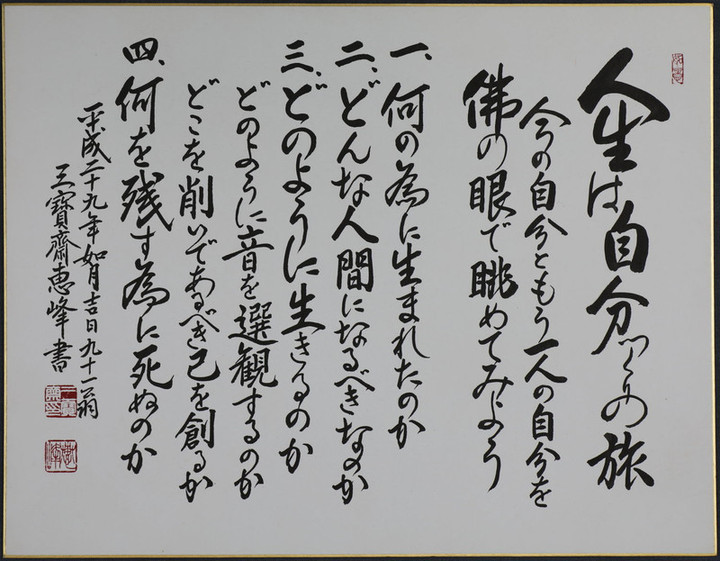 人生は自分づくりの旅
今の自分ともう一人の自分を
佛の眼で眺めてみよう
一、何の為に生まれたのか
二、どんな人間になるべきなのか
三、どのように生きるのか
どのように音を選観するのか
どこを削いであるべき己を創るか
四、何を残す為に死ぬのか
平成二十九年如月吉日九十一翁
三寳齋恵峰書